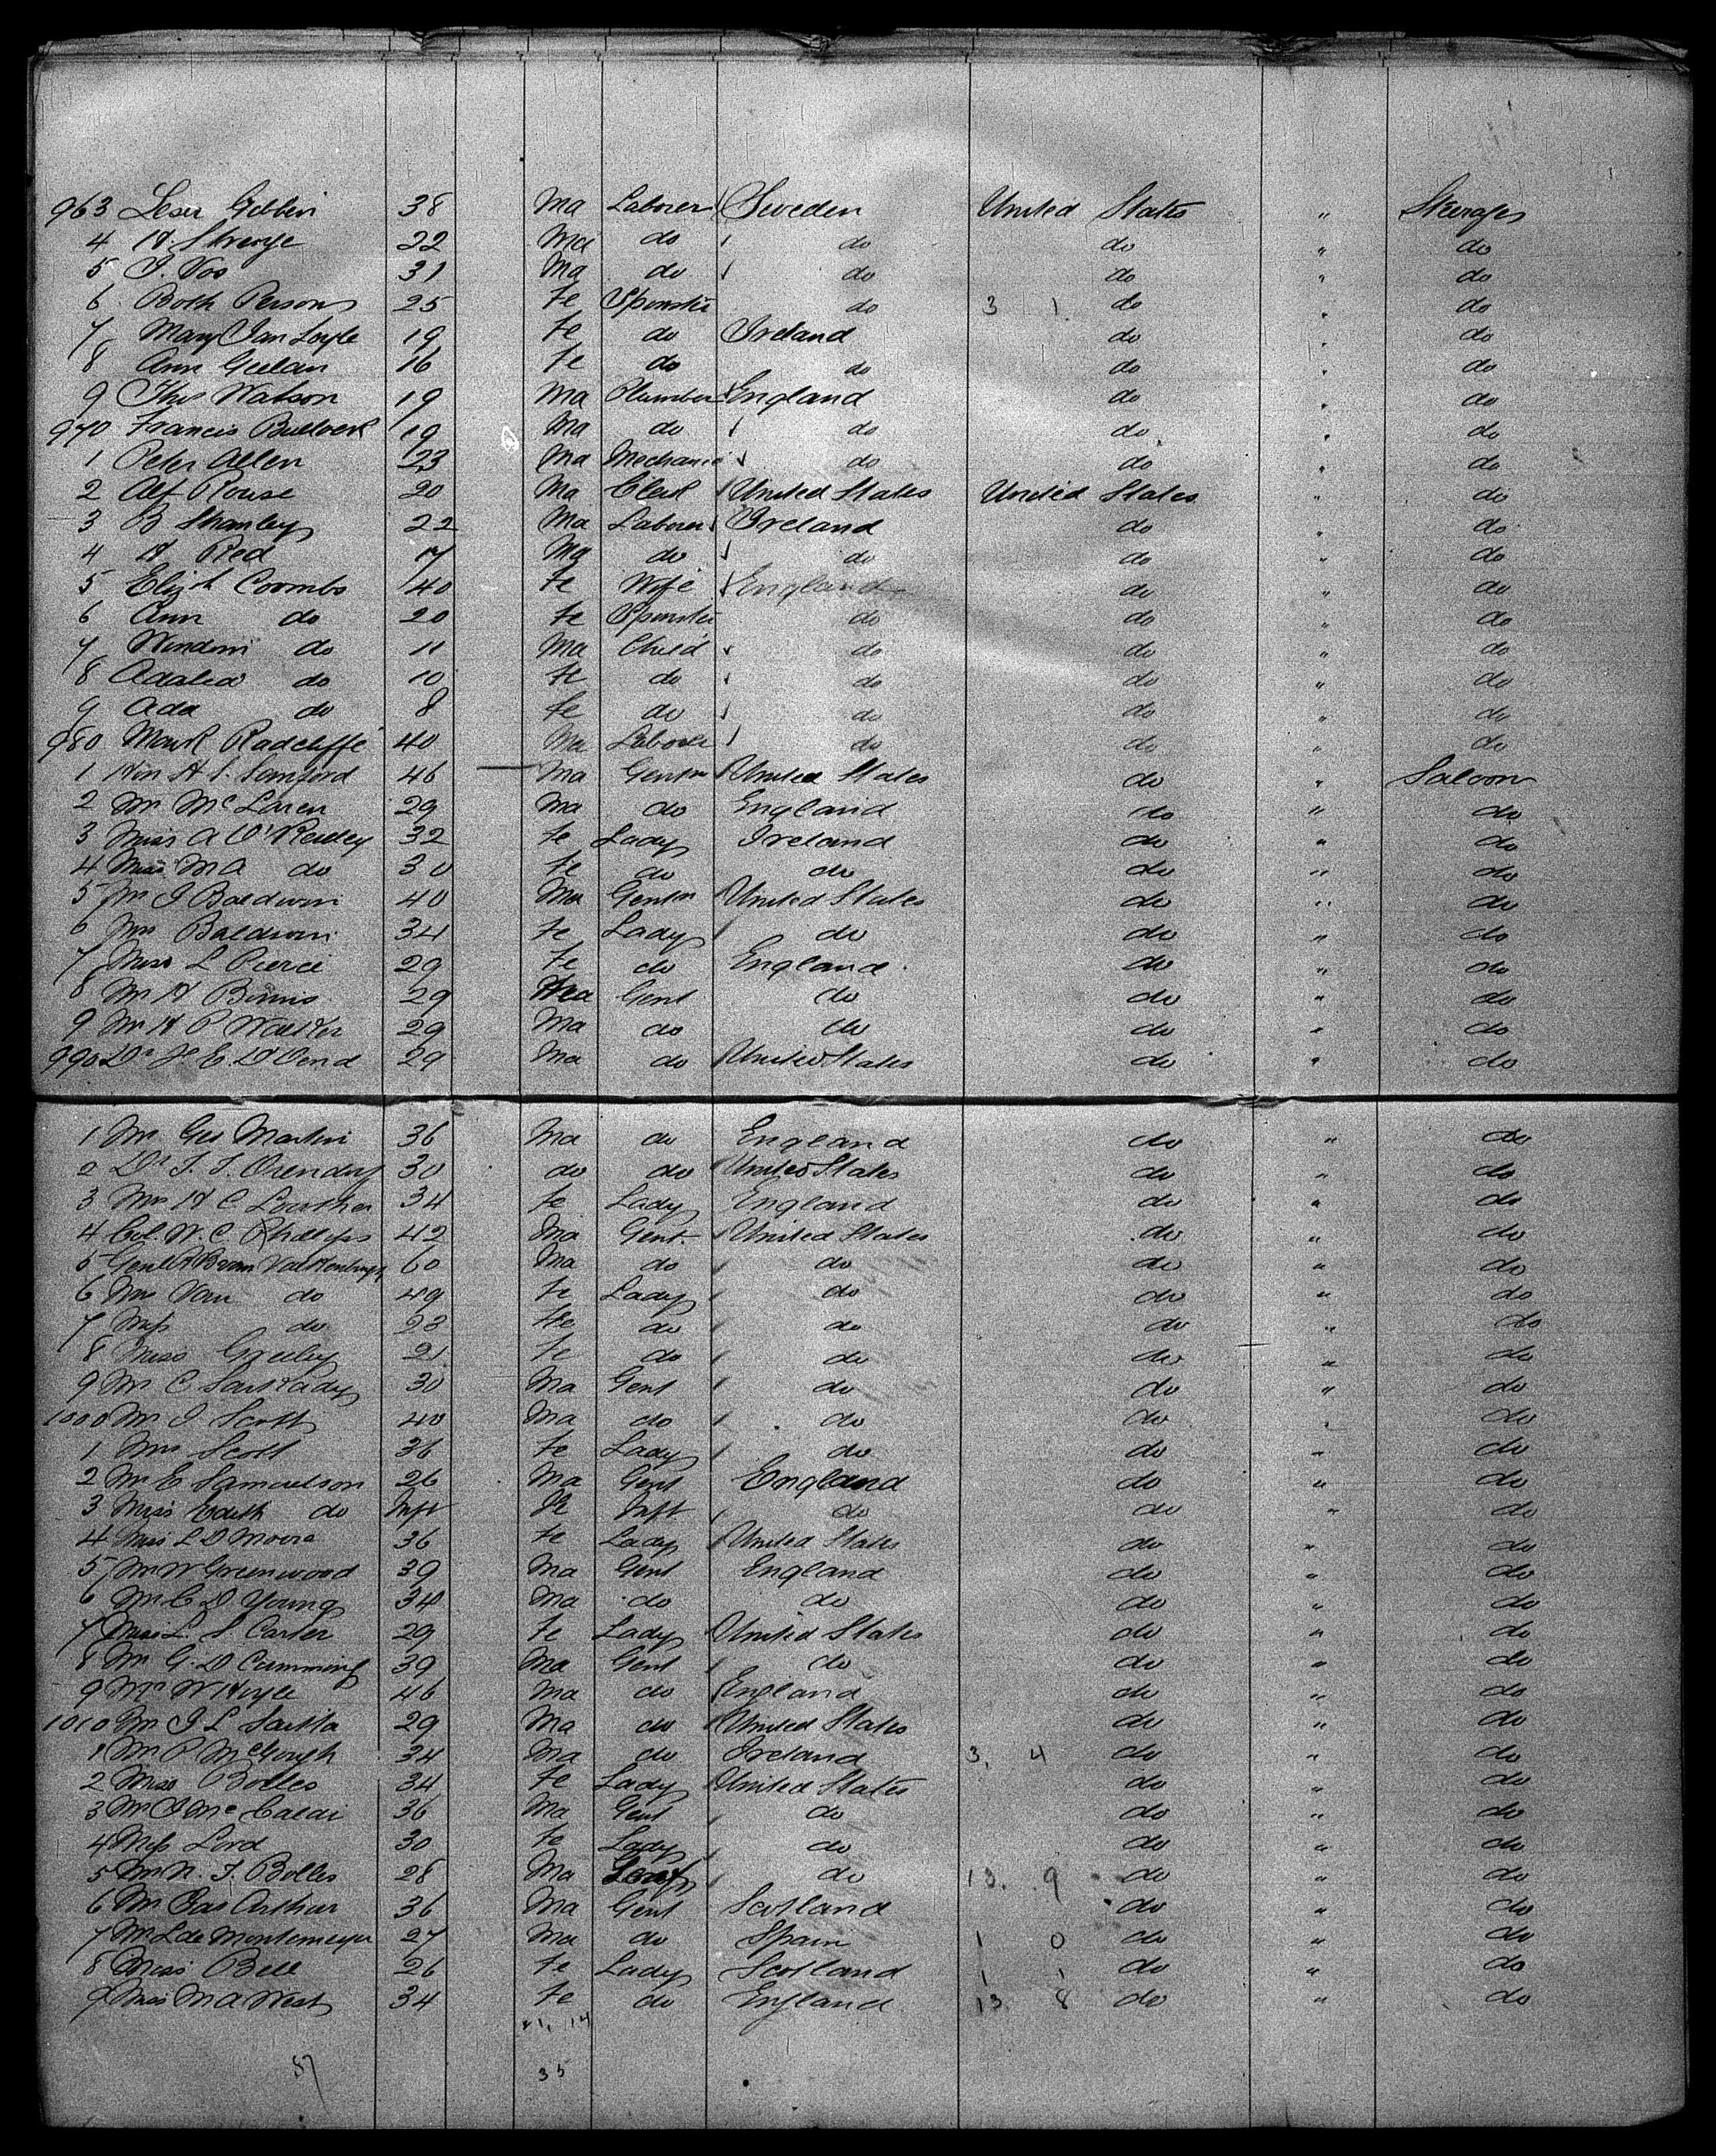 963 38 Ma Laborer Sweden United States " Steerage
4 H. Strenge 22 Ma do do do " do
5 J. Vos 31 Ma do do do " do
6 Persons 25 Fe Spinster do 3 1 do " do
7 Mary Jan 19 Fe do Ireland do " do
8 Ann Geelan 16 Fe do do do " do
9 Thos Watson 19 Ma Plumber England do " do
970 Francis Bullock 19 Ma do do do " do
1 Peter Allen 23 Ma Mechanic do do " do
2 Alf Rouse 20 Ma Clerk United States United States " do
3 B Stanley 22 Ma Laborer Ireland do " do
4 H Red 7 Ma do do do " do
5 Elizth Coombs 40 Fe Wife England do " do
6 Ann do 20 Fe Spinster do do " do
7 do 11 Ma Child do do " do
8 do 10 Fe do do do " do
9 Ada do 8 Fe do do do " do
980 Mark Radcliffe 40 Ma Laborer do do " do
1 Hon H. S. Sanford 46 Ma Gentn United States do " Saloon
2 Mr McLaren 29 Ma do England do " do
3 Miss A 32 Fe Lady Ireland do " do
4 Miss M A do 30 Fe do do do " do
5 Mr J Baldwin 40 Ma Gentn United States do " do
6 Mrs Baldwin 34 Fe Lady do do " do
7 Miss L Pierce 29 Fe do England do " do
8 Mr H Binns 29 Ma Gent do do " do
9 Mr H P Walker 29 Ma do do do " do
990 Dr 29 Ma do United States do " do
1 Mr Geo Martin 36 Ma do England do " do
2 Dr 30 do do United States do " do
3 Mrs H C Lowther 34 Fe Lady England do " do
4 Col. W. C. Phillips 42 Ma Gent. United States do " do
5 Genl 60 Ma do do do " do
6 Mrs Van do 49 Fe Lady do do " do
7 Miss do 23 Fe do do do " do
8 Miss Greeley 21 Fe do do do " do
9 Mr C 30 Ma Gent do do " do
1000 Mr J Scott 40 Ma do do do " do
1 Mrs Scott 36 Fe Lady do do " do
2 Mr E Samuelson 26 Ma Gent England do " do
3 Miss Edith do Inft Fe Inft do do " do
4 Miss L D Moore 36 Fe Lady United States do " do
5 Mr W Greenwood 39 Ma Gent England do " do
6 Mr C D Young 34 Ma do do do " do
7 Miss L. S Carter 29 Fe Lady United States do " do
8 Mr G. D Cumming 39 Ma Gent do do " do
9 Mr W Hoyle 46 Ma do England do " do
1010 Mr J L 29 Ma do United States do " do
1 Mr P McGough 34 Ma do Ireland 3, 4 do " do
2 Miss Bolles 34 Fe Lady United States do " do
3 Mr J Mc 36 Ma Gent do do " do
4 Miss Lord 30 Fe Lady do do " do
5 Mr N. J. Bolles 28 Ma Gent do 13. 9 do " do
6 Mr Jas Arthur 36 Ma Gent Scotland do " do
7 Mr L de 27 Ma do Spain 1 0 do " do
8 Miss Bell 26 Fe Lady Scotland 1 1 do " do
9 Miss M A West 34 Fe do England 13. 8 do " do
21, 14
57 35